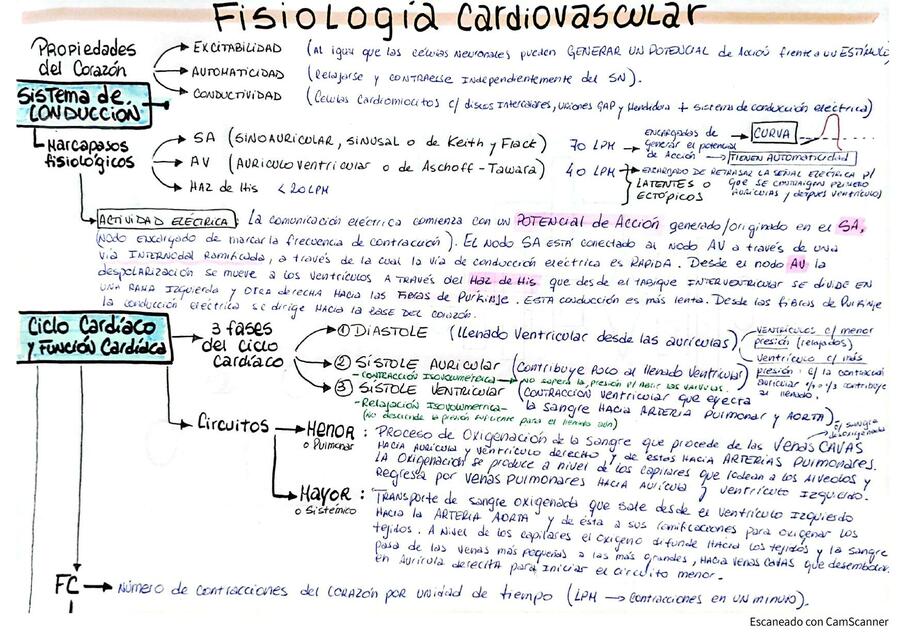 Fisiología Cardiovascular
Propiedades del Corazón
EXCITABILIDAD (Al igual que las células Neuronales pueden GENERAR UN POTENCIAL de Acción frente a un ESTÍMULO,
AUTOMATICIDAD (Relajarse y CONTRAERSE Independientemente del SN).
CONDUCTIVIDAD (Células Cardiomiocitos c/ discos Intercalares, uniones GAP y Hendidura + sistema de conducción eléctrica)
SISTEMA de CONDUCCIÓN
Marcapasos fisiológicos
SA (SINOAURICULAR, SINUSAL o de Keith y Flack) 70 LPM
ENCARGADOS de generar el potencial de Acción
CURVA
TIENEN AUTOMATICIDAD
AV (AURICULOVENTRICULAR o de Aschoff-Tawara) 40 LPM
ENCARGADO DE RETRASAR LA SEÑAL ELÉCTRICA P/ QUE SE CONTRAIGAN PRIMERO AURÍCULAS y después VENTRÍCULOS)
HAZ de His < 20 LPM
LATENTES o ECTÓPICOS
ACTIVIDAD ELÉCTRICA: La comunicación eléctrica comienza con un POTENCIAL de Acción generado/originado en el SA,
(Nodo encargado de marcar la frecuencia de contracción). El Nodo SA está conectado al nodo AV a través de una
vía INTERNODAL Ramificada, a través de la cual la vía de conducción eléctrica es RÁPIDA. Desde el nodo AV la
despolarización se mueve a los ventrículos A TRAVÉS del Haz de His que desde el tabique INTERVENTRICULAR se divide en
UNA RAMA IZQUIERDA y OTRA derecha HACIA las Fibras de Purkinje. Esta conducción es más lenta. Desde las fibras de Purkinje
la conducción eléctrica se dirige hacia la base del corazón.
Ciclo Cardíaco y Función Cardíaca
3 fases del ciclo cardíaco
① DIASTOLE (llenado Ventricular desde las aurículas)
VENTRÍCULOS c/ menor presión (relajados)
② SÍSTOLE AURICULAR (Contribuye poco al llenado Ventricular)
VENTRÍCULO c/ más presión: c/ la contracción auricular % contribuye al llenado.
- CONTRACCIÓN ISOVOLUMÉTRICA → No supera la presión p/ abrir las válvulas.
③ SÍSTOLE VENTRICULAR (CONTRACCIÓN VENTRICULAR que eyecta la sangre HACIA ARTERIA Pulmonar y AORTA)
- Relajación Isovolumétrica -
(No desciende la presión suficiente para el llenado aún)
Circuitos
Menor o Pulmonar: Proceso de Oxigenación de la Sangre que procede de las Venas CAVAS
c/ sangre desoxigenada
HACIA AURÍCULA y VENTRÍCULO derecho, y de éstas HACIA ARTERIAS Pulmonares.
LA Oxigenación se produce a nivel de los capilares que rodean a los Alveolos y
Regresa por venas Pulmonares HACIA Aurícula y ventrículo Izquierdo.
Mayor o Sistémico: TRANSPORTE de sangre oxigenada que sale desde el Ventrículo Izquierdo
HACIA la ARTERIA AORTA y de ésta a sus ramificaciones para oxigenar los
tejidos. A Nivel de los capilares el oxígeno difunde HACIA los tejidos y la sangre
pasa de las venas más pequeñas a las más grandes, HACIA venas CAVAS que desembocan
en Aurícula derecha para Iniciar el circuito menor.
FC → Número de contracciones del CORAZÓN por unidad de tiempo (LPM → Contracciones en un minuto).
Escaneado con CamScanner